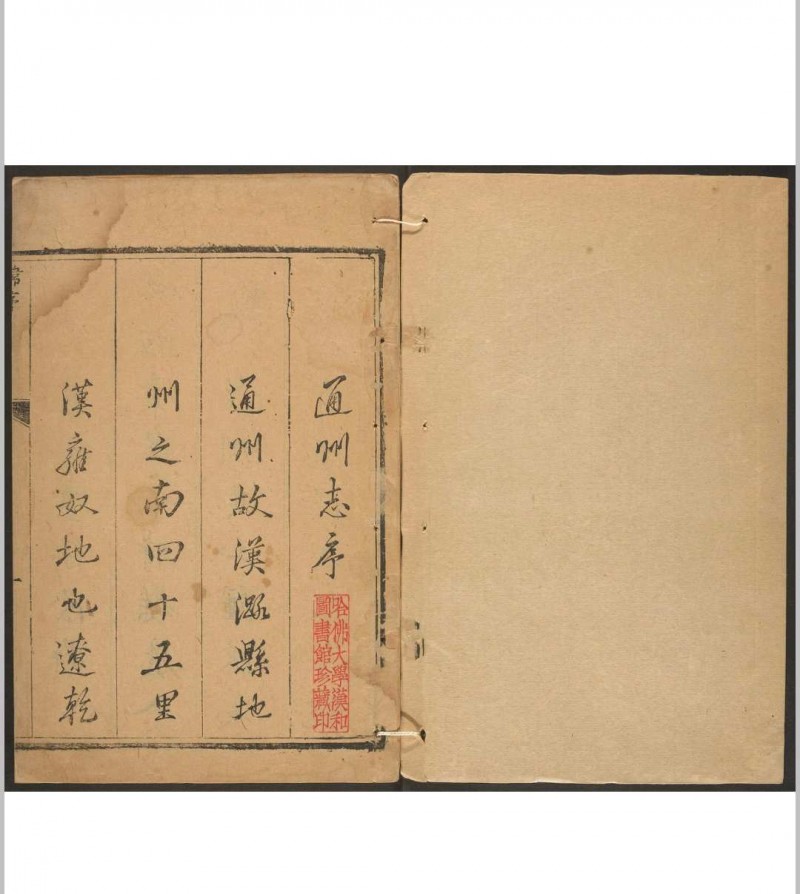 通州志序
通州故漢潞縣地
州之南四十五里
漢雍奴地也遼乾
哈佛大學漢和
圖書館珍藏印